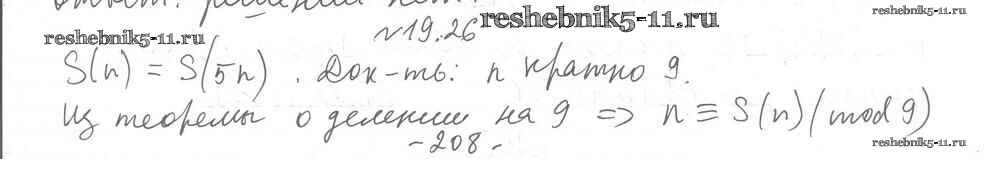 reshebnik5-11.ru
reshebnik5-11.ru
№19.26
reshebnik5-11.ru
S(n) = S(5n). Док-ть: n кратно 9.
Из теоремы о делении на 9 => n ≡ S(n) (mod 9)
-208-
reshebnik5-11.ru